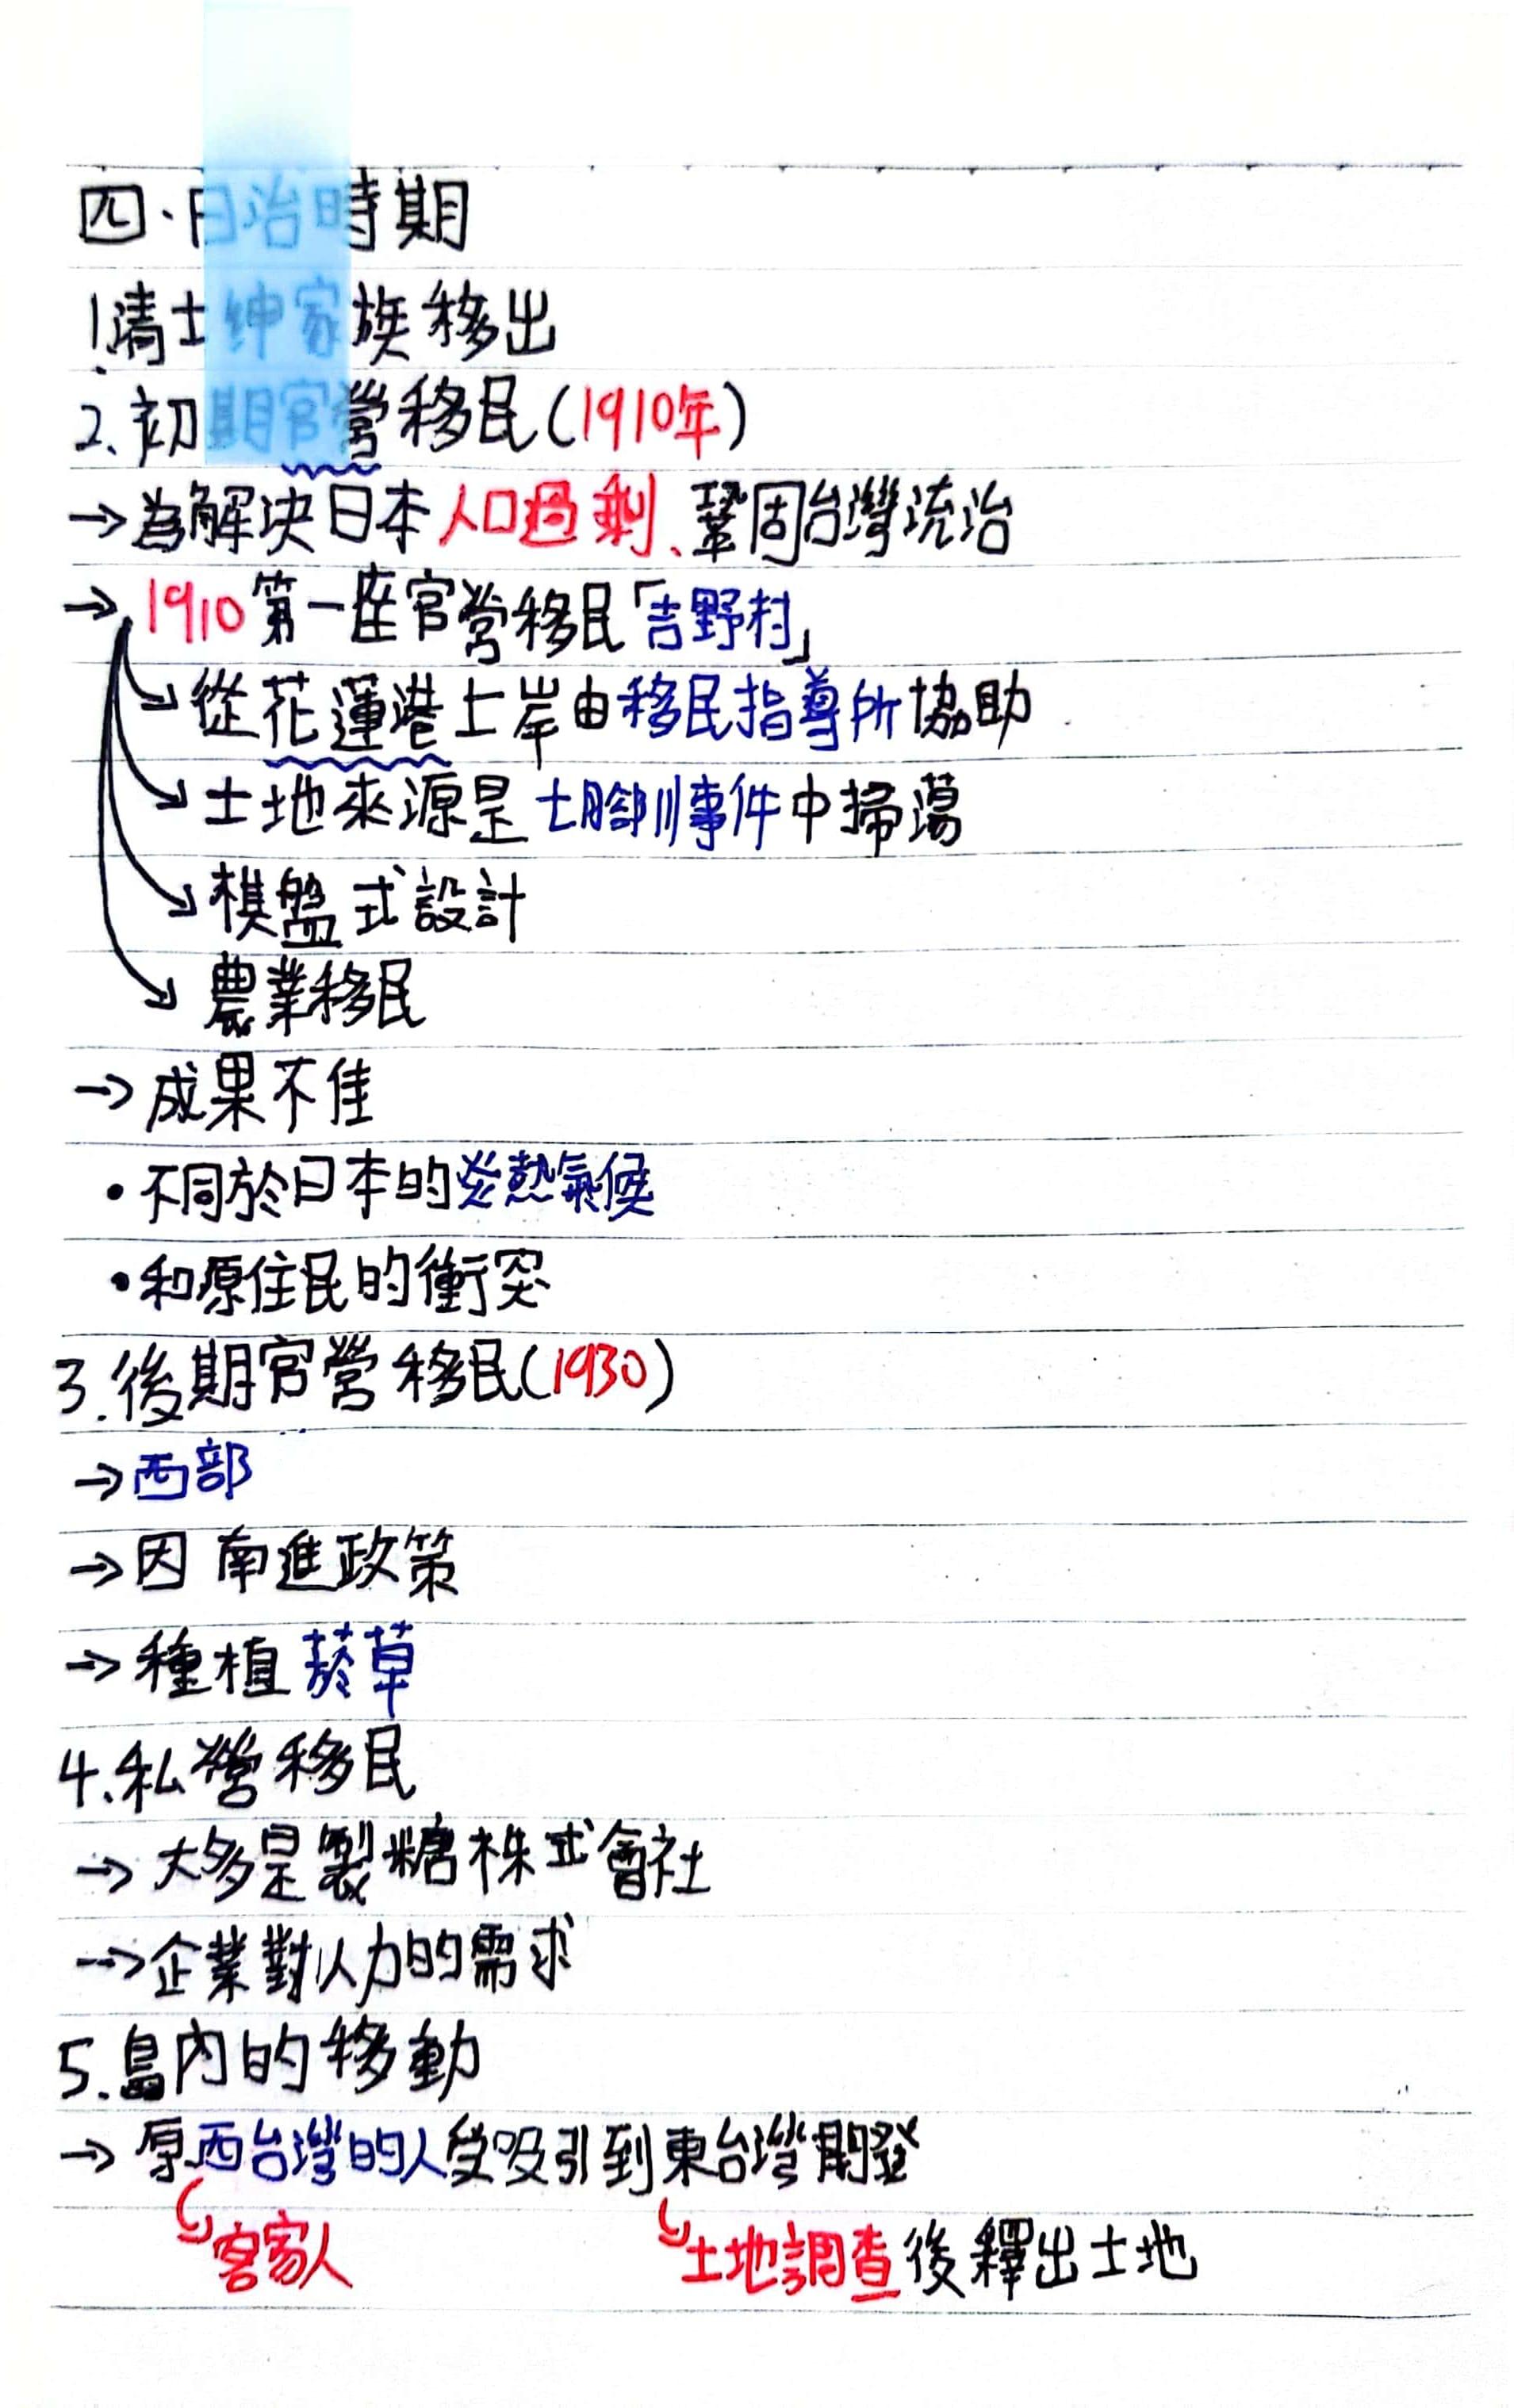 四、日治時期
1.清士紳家族移出
2.初期官營移民(1910年)
→為解決日本人口過剩、鞏固台灣統治
→1910第一座官營移民「吉野村」
↘從花蓮港上岸由移民指導所協助
↘土地來源是七腳川事件中掃蕩
↘棋盤式設計
↘農業移民
→成果不佳
•不同於日本的炎熱氣候
•和原住民的衝突
3.後期官營移民(1930)
→西部
→因南進政策
→種植菸草
4.私營移民
→大多是製糖株式會社
→企業對人力的需求
5.島內的移動
→原西台灣的人受吸引到東台灣開發
↳客家人 ↳土地調查後釋出土地